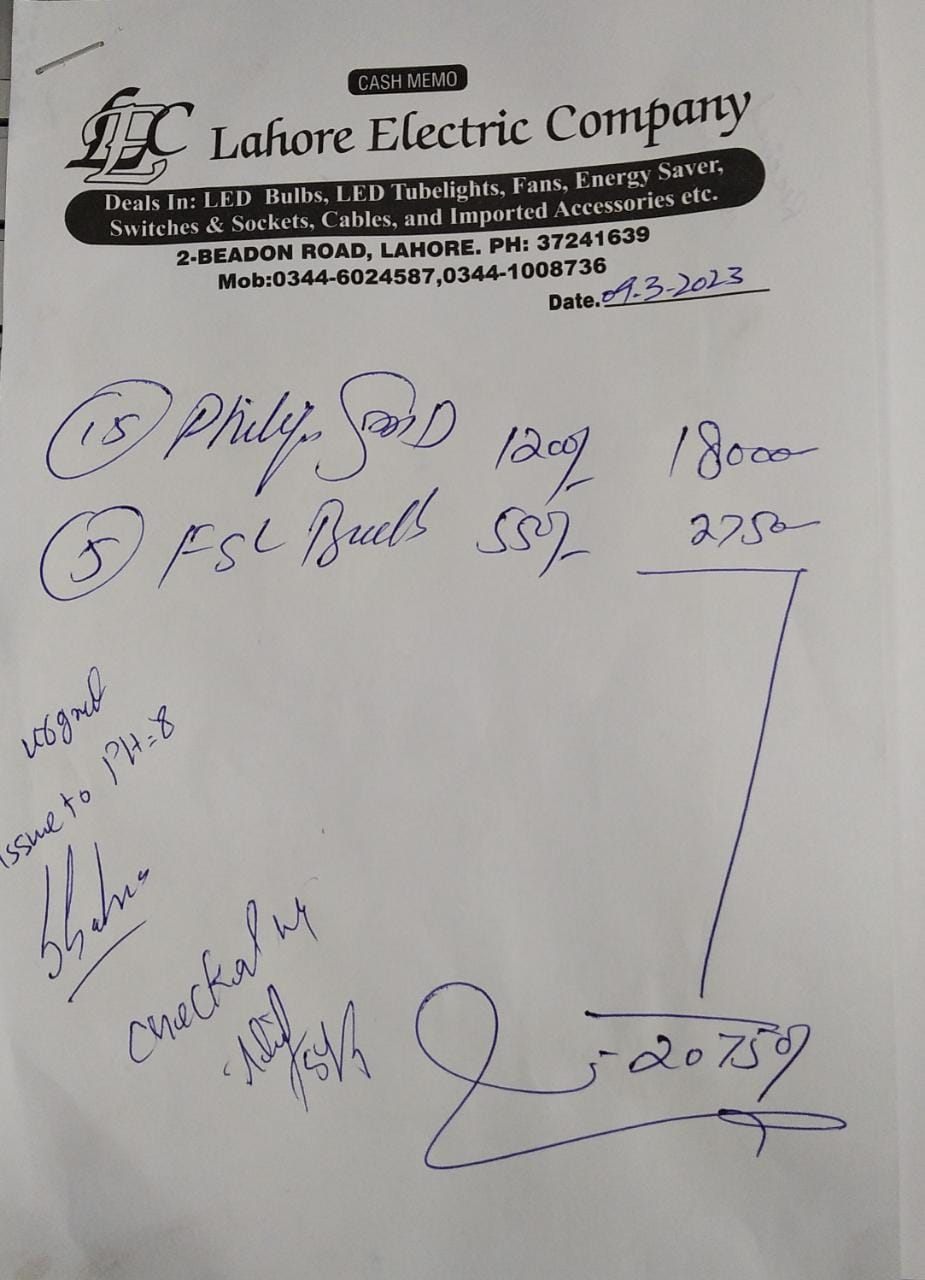 CASH MEMO
LEC Lahore Electric Company
Deals In: LED Bulbs, LED Tubelights, Fans, Energy Saver,
Switches & Sockets, Cables, and Imported Accessories etc.
2-BEADON ROAD, LAHORE. PH: 37241639
Mob:0344-6024587,0344-1008736
Date. 09-3-2023
15 Philips 1200/- 18000
5 FSL Bulb 550/- 2750
issue to PH=8
Checked by
20750/